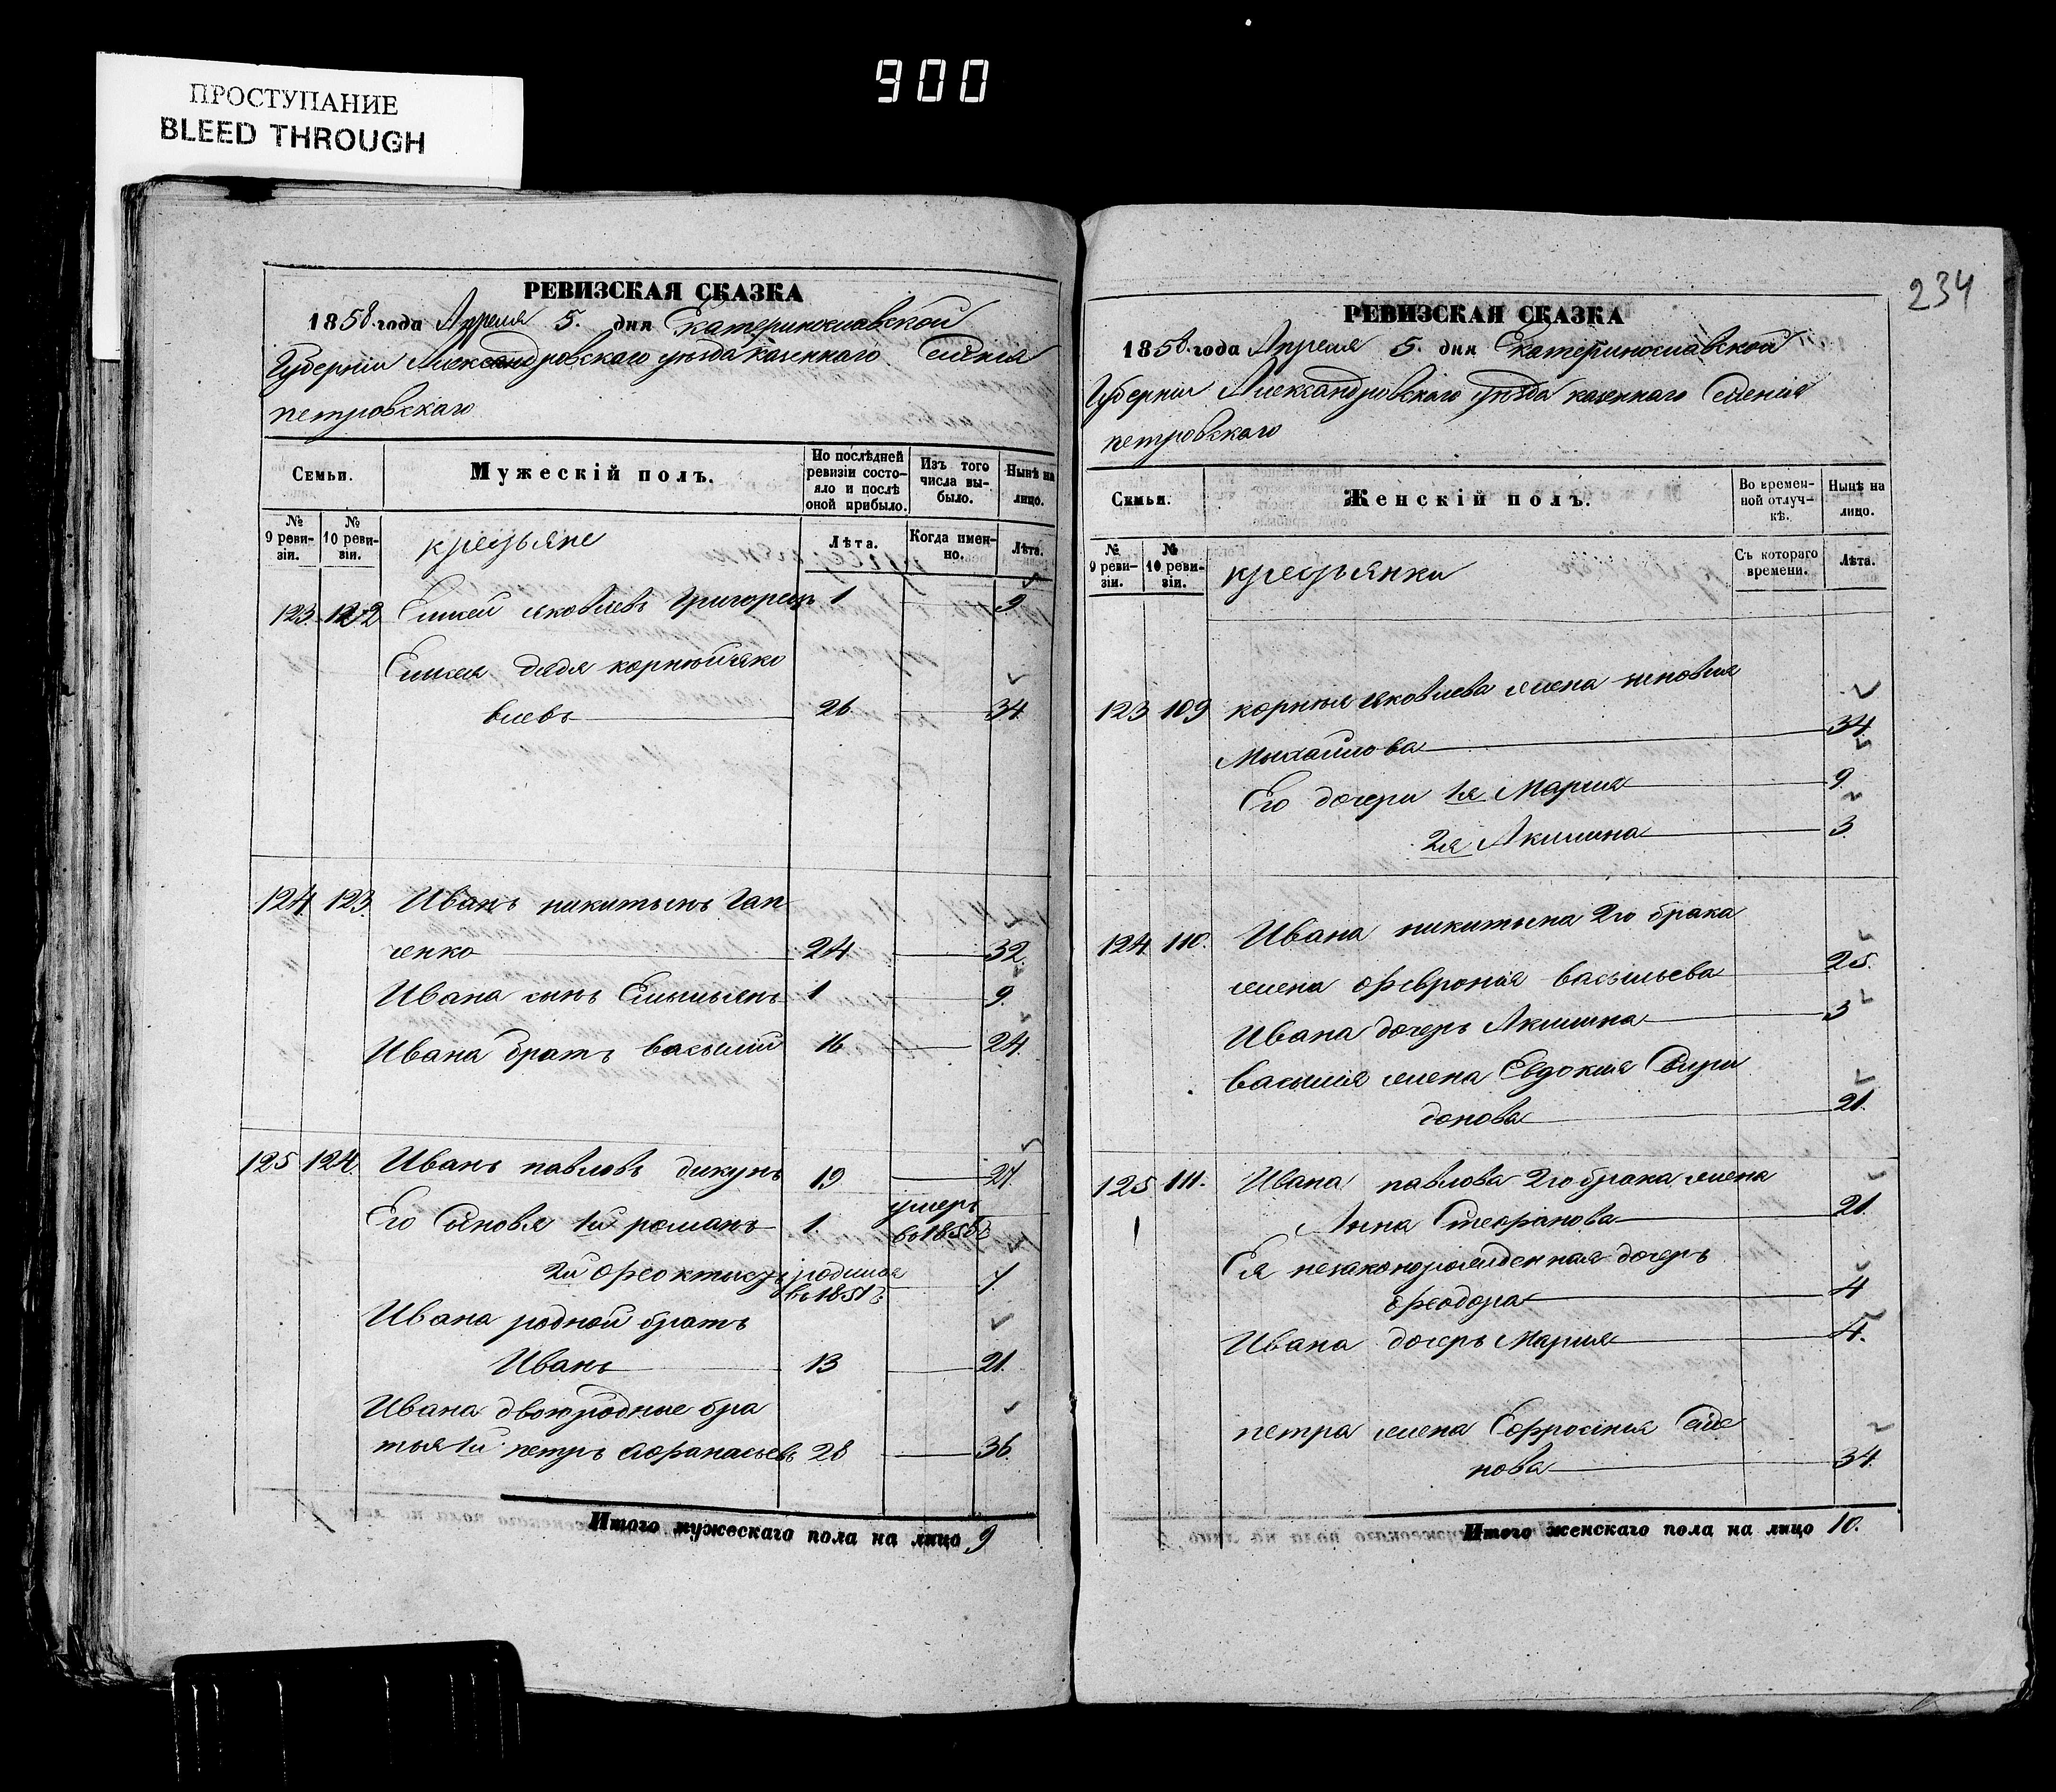 900
ПРОСТУПАНИЕ
BLEED THROUGH
РЕВИЗСКАЯ СКАЗКА
1858 года Апреля 5. дня Екатеринославской
Губерніи Александровского уѣзда казеннаго Селенія
петровскаго
Семьи.
Мужескій полъ.
По послѣдней ревизіи состояло и послѣ оной прибыло.
Изъ того числа выбыло.
Нынѣ на лицо.
№ 9 ревизіи.
№ 10 ревизіи.
крестьяне
Лѣта.
Когда именно.
Лѣта.
123. 122 яковлевъ 1 9
дядя корнѣй яко
влевъ 26 34
124 123. Иванъ никитынъ Гап
ченко 24 32.
Ивана сынъ Емыльянъ 1 9.
Ивана братъ васылій 16 24.
125 124. Иванъ павловъ дикунъ 19 27
умеръ
Его Сыновя 1й романъ 1. въ 1855 г.
2й Феоктистъ родился 7.
въ 1851 г.
Ивана родной братъ
Иванъ 13 21.
Ивана двоюродные бра
тья 1й петръ Афанасьевъ 28 36.
Итого мужескаго пола на лицо 9
234
РЕВИЗСКАЯ СКАЗКА
1858 года Апреля 5. дня Екатеринославской
Губерніи Александровскаго уѣзда казеннаго Селенія
петровскаго
Семьи.
Женскій полъ.
Во временной отлучкѣ.
Нынѣ на лицо.
№ 9 ревизіи.
№ 10 ревизіи.
крестьянки
Съ котораго времени.
Лѣта.
123 109 корнѣя яковлева жена зѣновія
Мыхайлова 34
Его дочери 1я Марія 9.
2я Акилина 3.
124 110. Ивана никитына 2го брака
жена Февронія васыльева 25.
Ивана дочерь Акилина 3
васылія жена Евдокия Спири
донова 21.
125 111. Ивана павлова 2го брака жена
Анна Стефанова 21.
Ея незаконорожденная дочерь
Феодора 4
Ивана дочерь Марія 4.
петра жена Ефросинія
нова 34.
Итого женскаго пола на лицо 10.